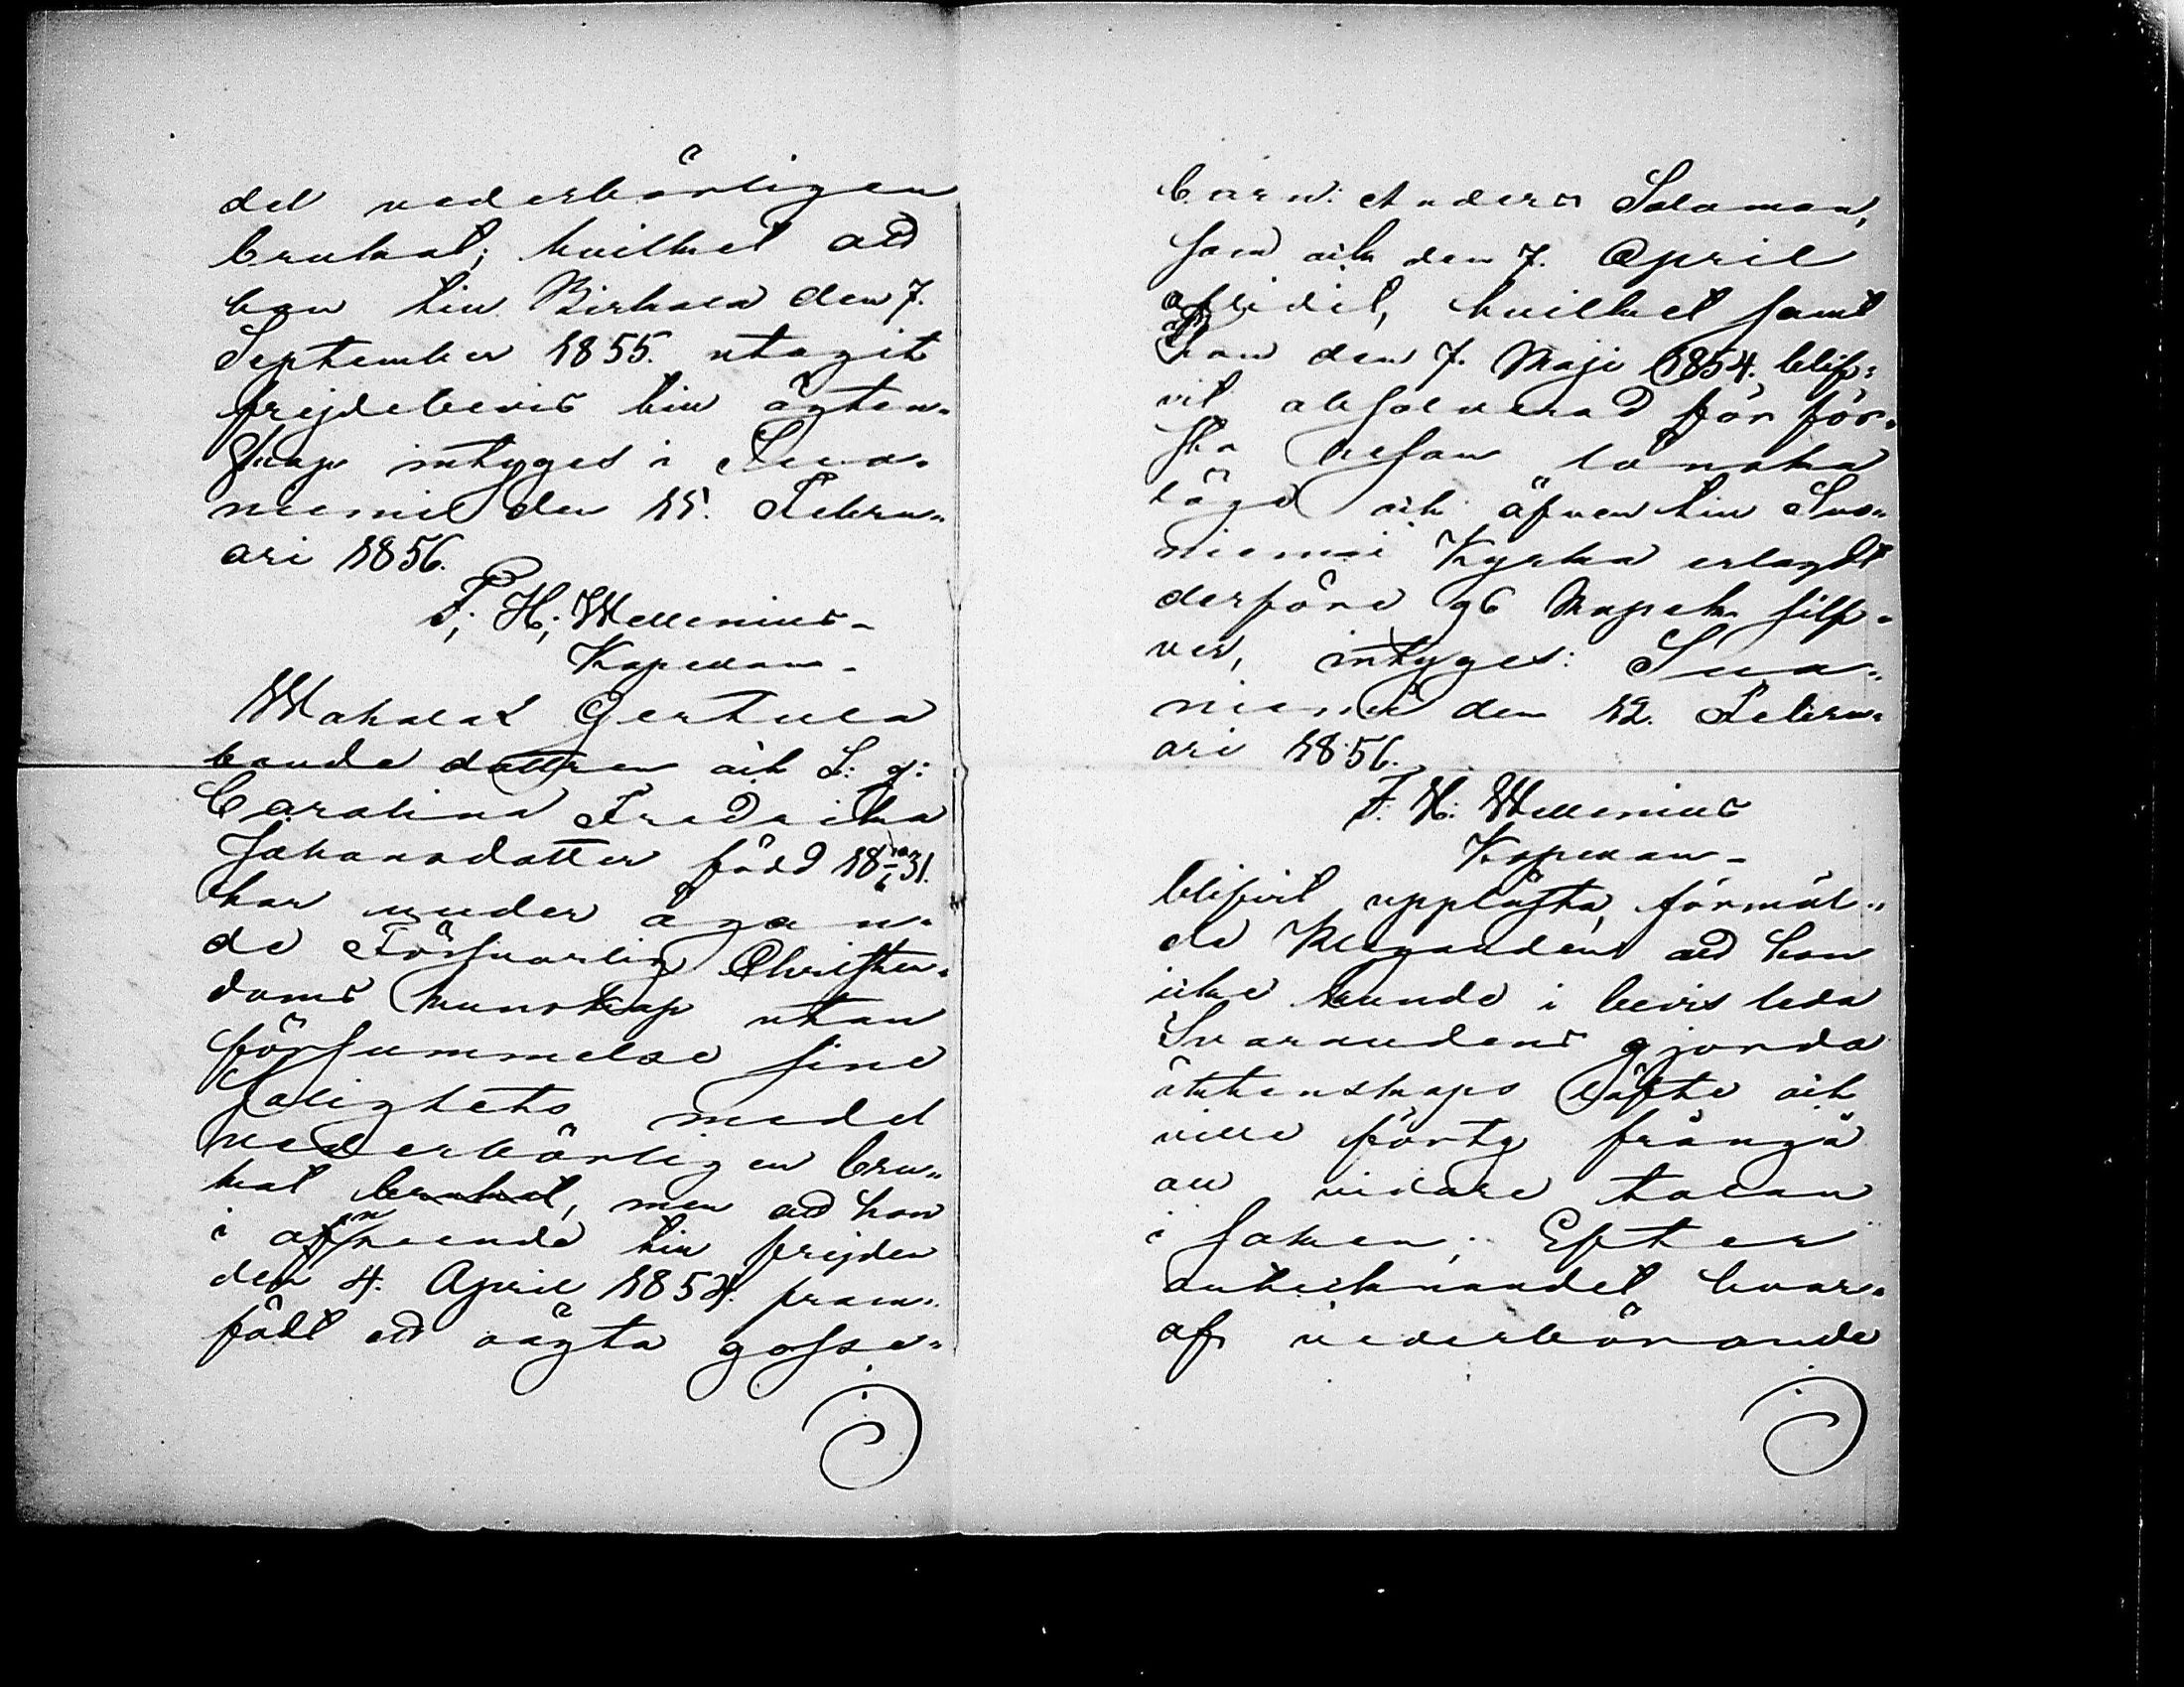 del vederbörligen
brukat; hvilket att
han till Birkala den 7.
September 1855. utagit
frejdebevis till ägten-
skap intyges i Suo-
niemi den 15. Febru-
ari 1856.
F; H; Mellenius-
Kapellan-
Mahalas Gertula
bonde dottren och L: q:
Carolina Fredrika
Johansdotter född 18 10/6 31.
har under ägan-
de Försvarlig Christen-
doms kunskap utan
försummelse sine
salighets medel
vederbörligen bru-
kat brukat, men att hon
i afseende till frejden
den 4. April 1854. fram-
födt ett oägta gosse-
barn: Anders Salomon,
som ock den 7. April
aflidit, hvilket samt
att hon den 7. Maji 1854. blif-
vit absolverad för för-
sta resan lönska
läge och äfven till Suo-
niemi Kyrka erlagdt
derföre 96 kopek silf-
ver, intyges: Suo-
niemi den 12. Febru-
ari 1856.
F: H: Mellenius
Kapellan-
blifvit uppläsfta, förmäl-
de Käganden att hon
icke kunde i bevis leda
Svarandens gjorda
äktenskaps löfte och
ville förty frångå
all vidare talan
i saken; Efter
antecknandet hvar-
af vederbörande